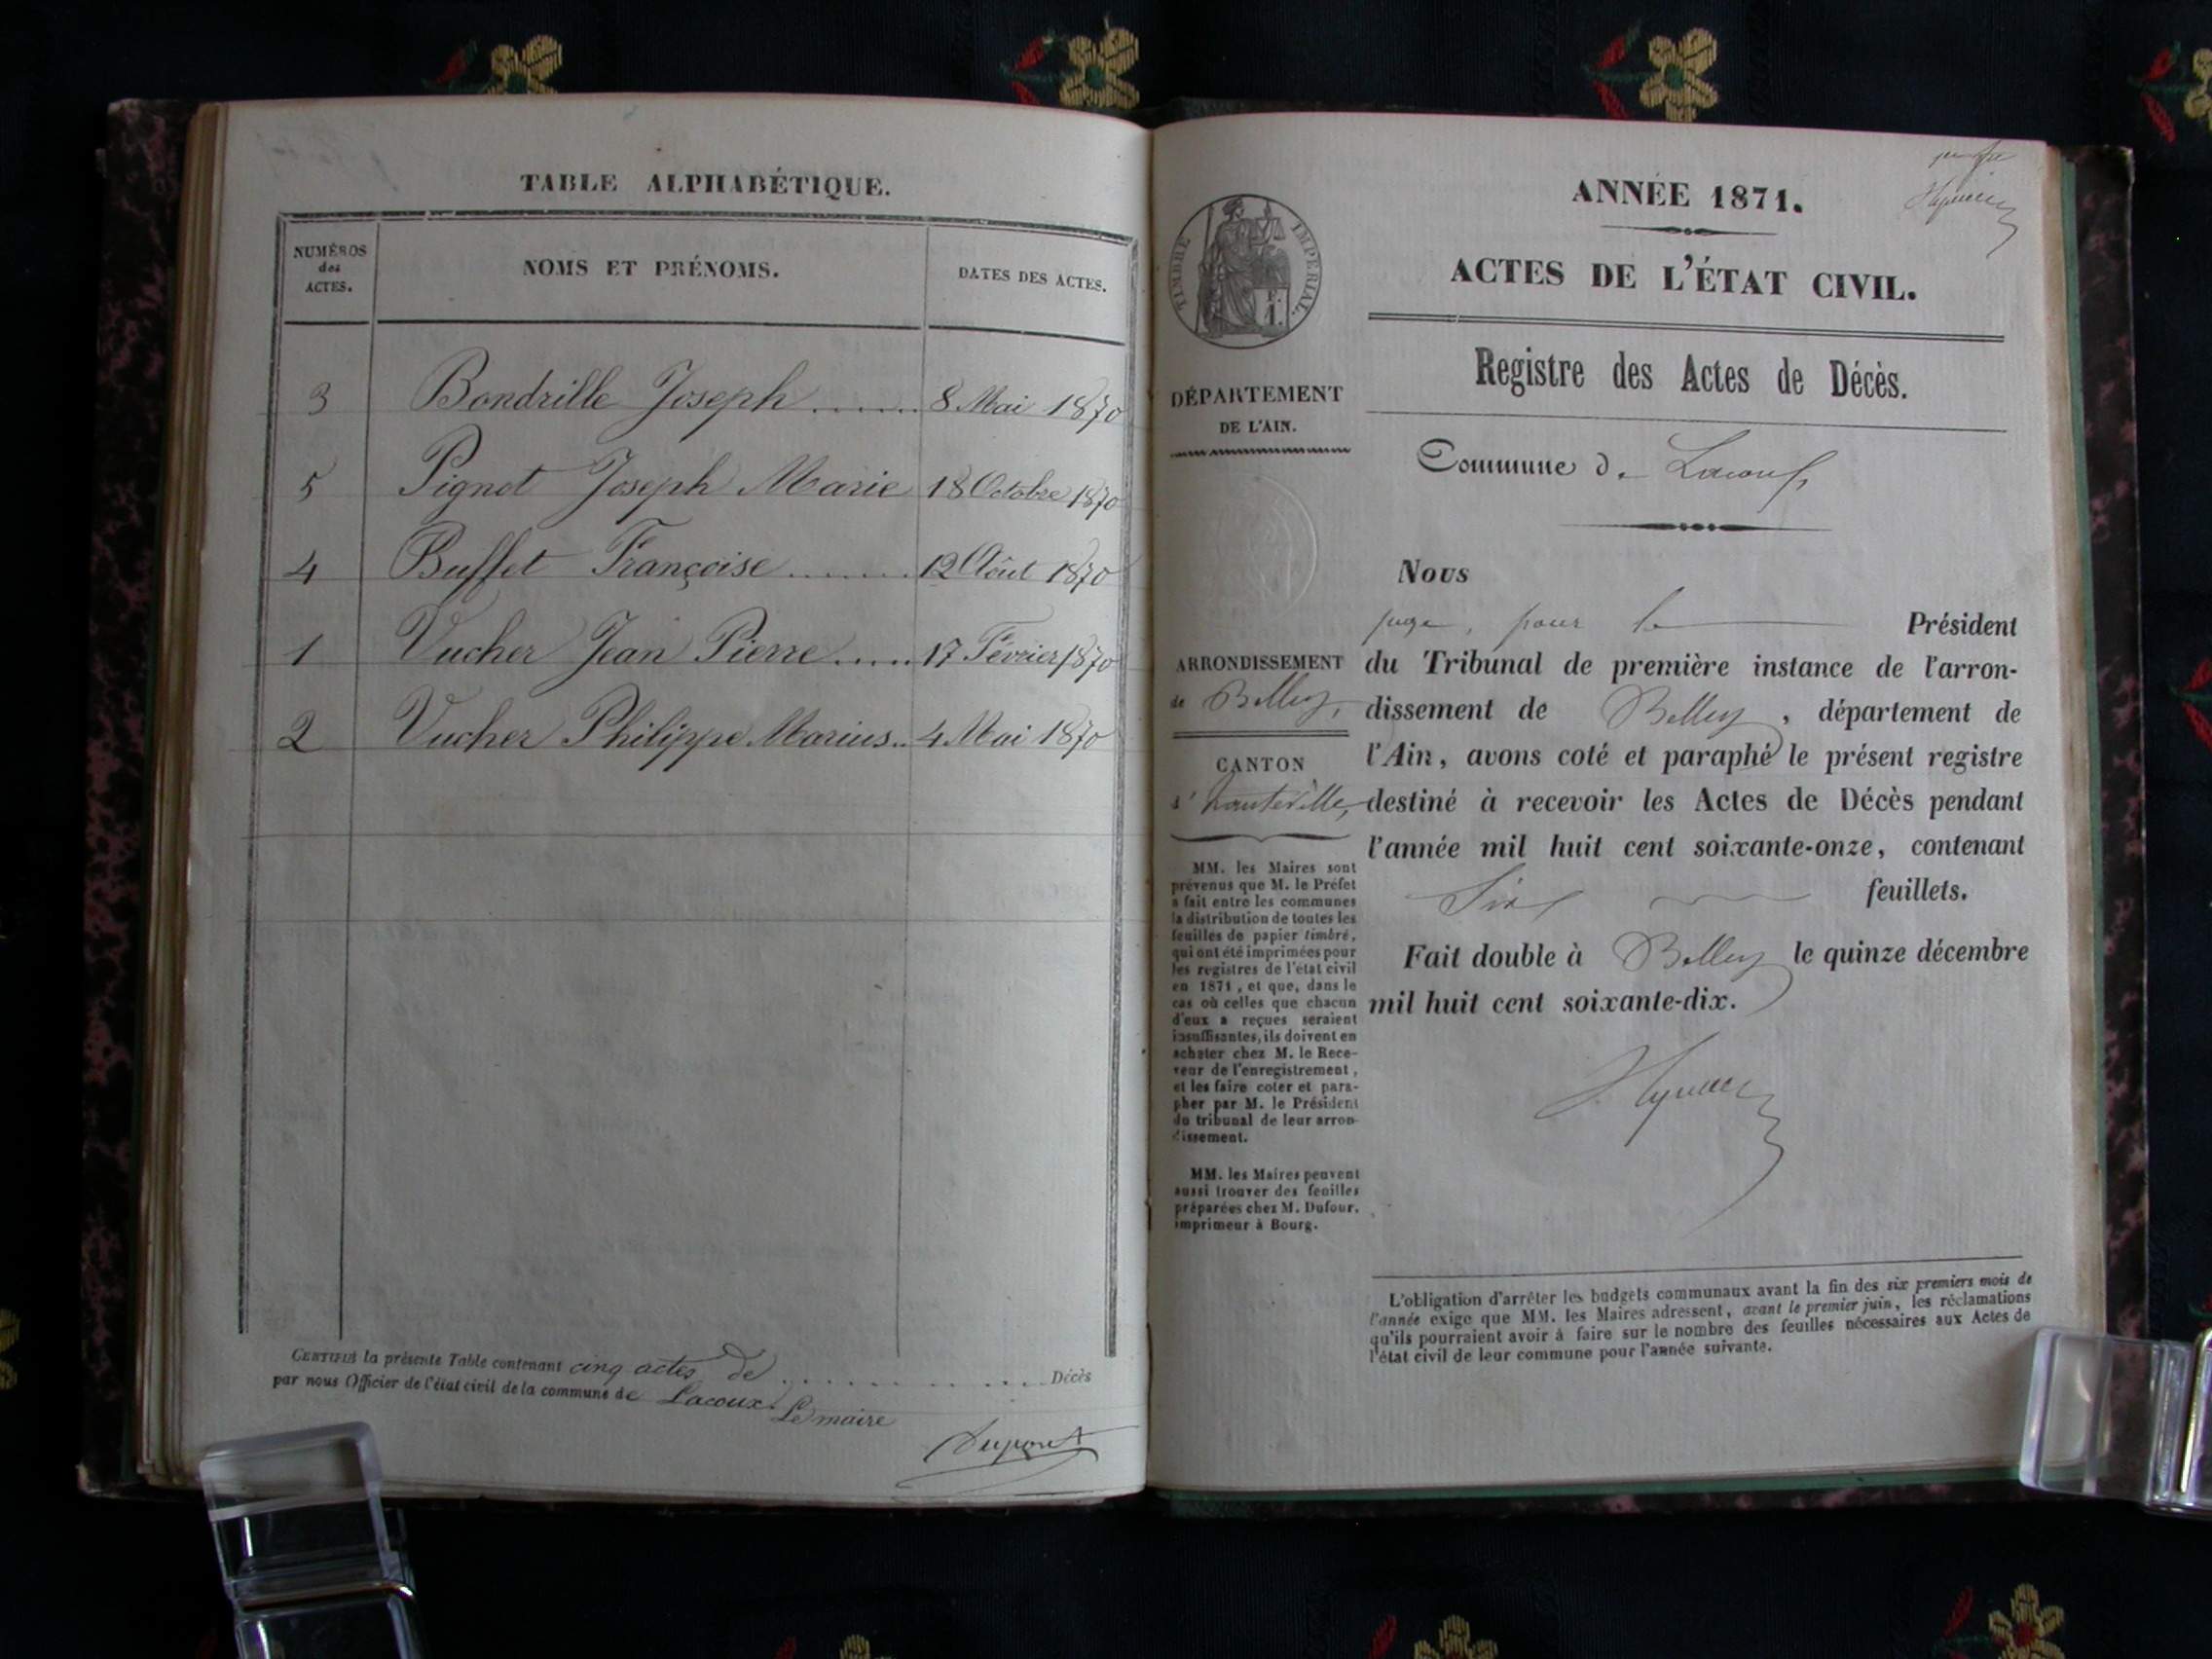 TABLE ALPHABÉTIQUE.
NUMÉROS
des
ACTES.
NOMS ET PRÉNOMS.
DATES DES ACTES.
3 Bondrille Joseph ....... 8 Mai 1870
5 Pignot Joseph Marie 18 Octobre 1870
4 Buffet Françoise ........ 12 Août 1870
1 Vucher Jean Pierre ..... 17 Février 1870
2 Vucher Philippe Marius .. 4 Mai 1870
CERTIFIÉ la présente Table contenant cinq actes de .............. Décès
par nous Officier de l'état civil de la commune de Lacoux.
Le maire
Dupont
ANNÉE 1871.
ACTES DE L'ÉTAT CIVIL.
Registre des Actes de Décès.
Commune de Lacoux,
TIMBRE IMPÉRIAL.
DÉPARTEMENT
DE L'AIN.
ARRONDISSEMENT
de Belley,
CANTON
d'hauteville,
MM. les Maires sont
prévenus que M. le Préfet
a fait entre les communes
la distribution de toutes les
feuilles de papier timbré,
qui ont été imprimées pour
les registres de l'état civil
en 1871, et que, dans le
cas où celles que chacun
d'eux a reçues seraient
insuffisantes, ils doivent en
acheter chez M. le Rece-
veur de l'enregistrement,
et les faire coter et para-
pher par M. le Président
du tribunal de leur arron-
dissement.
MM. les Maires peuvent
aussi trouver des feuilles
préparées chez M. Dufour,
imprimeur à Bourg.
Nous
juge, pour le Président
du Tribunal de première instance de l'arron-
dissement de Belley, département de
l'Ain, avons coté et paraphé le présent registre
destiné à recevoir les Actes de Décès pendant
l'année mil huit cent soixante-onze, contenant
Six feuillets.
Fait double à Belley le quinze décembre
mil huit cent soixante-dix.
L'obligation d'arrêter les budgets communaux avant la fin des six premiers mois de
l'année exige que MM. les Maires adressent, avant le premier juin, les réclamations
qu'ils pourraient avoir à faire sur le nombre des feuilles nécessaires aux Actes de
l'état civil de leur commune pour l'année suivante.